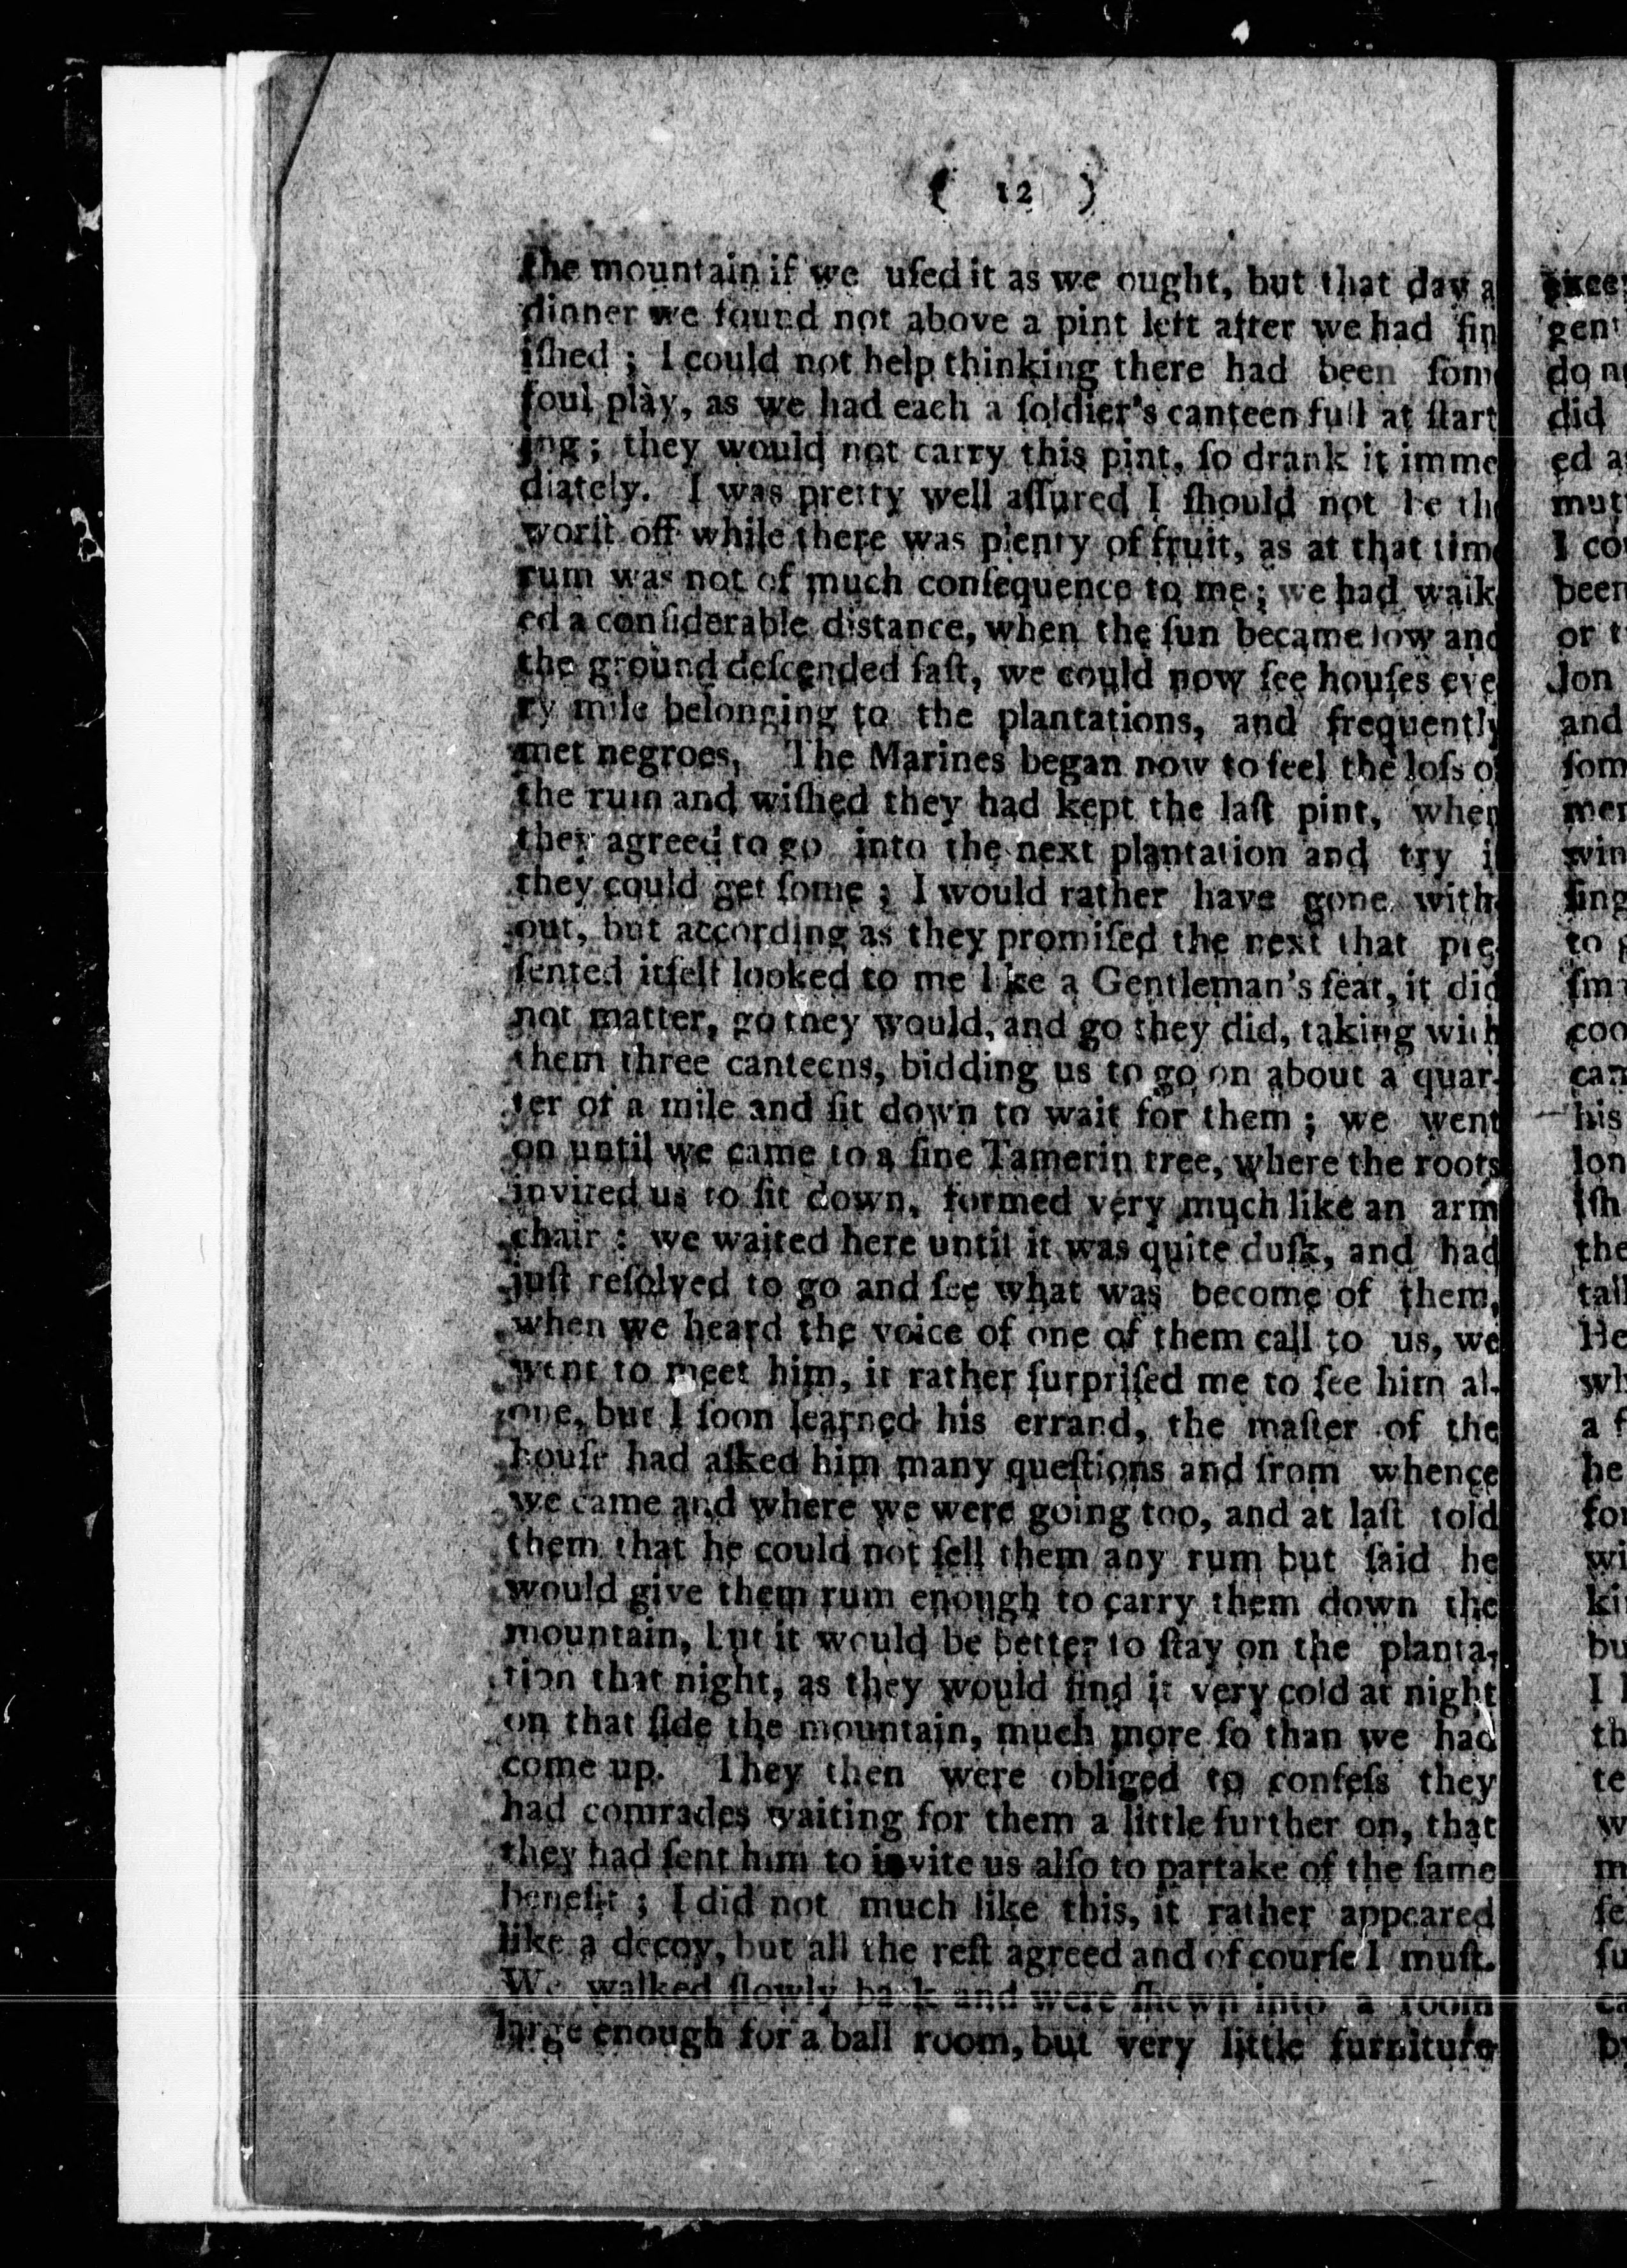 ( 12 )
the mountain if we uſed it as we ought, but that day a
dinner we found not above a pint left after we had fin
iſhed ; I could not help thinking there had been ſome
foul play, as we had each a ſoldier's canteen full at ſtart
ing ; they would not carry this pint, ſo drank it imme
diately. I was pretty well aſſured I ſhould not be the
worſt off while there was plenty of fruit, as at that time
rum was not of much conſequence to me ; we had walk
ed a conſiderable distance, when the ſun became low and
the ground deſcended faſt, we could now ſee houſes eve
ry mile belonging to the plantations, and frequently
met negroes, The Marines began now to feel the loſs o
the rum and wiſhed they had kept the laſt pint, when
they agreed to go into the next plantation and try i
they could get ſome ; I would rather have gone with
out, but according as they promiſed the next that pre
ſented itſelf looked to me like a Gentleman's ſeat, it did
not matter, go they would, and go they did, taking with
them three canteens, bidding us to go on about a quar-
ter of a mile and ſit down to wait for them ; we went
on until we came to a fine Tamerin tree, where the roots
invited us to ſit down, formed very much like an arm
chair : we waited here until it was quite duſk, and had
juſt reſolved to go and ſee what was become of them,
when we heard the voice of one of them call to us, we
went to meet him, it rather ſurpriſed me to ſee him al-
one, but I ſoon learned his errand, the maſter of the
houſe had aſked him many queſtions and from whence
we came and where we were going too, and at laſt told
them that he could not ſell them any rum but ſaid he
would give them rum enough to carry them down the
mountain, but it would be better to ſtay on the planta-
tion that night, as they would find it very cold at night
on that ſide the mountain, much more ſo than we had
come up. They then were obliged to confeſs they
had comrades waiting for them a little further on, that
they had ſent him to invite us alſo to partake of the ſame
benefit ; I did not much like this, it rather appeared
like a decoy, but all the reſt agreed and of courſe I muſt.
We walked ſlowly back and were ſhewn into a room
large enough for a ball room, but very little furniture
gent
do n
did
ed a
mut
I co
been
or t
lon
and
ſom
mer
win
ſing
to g
ſm
coo
can
his
lon
iſh
the
tall
He
wh
a f
he
for
wi
ki
bu
I
th
te
w
m
ſe
ſu
ca
by